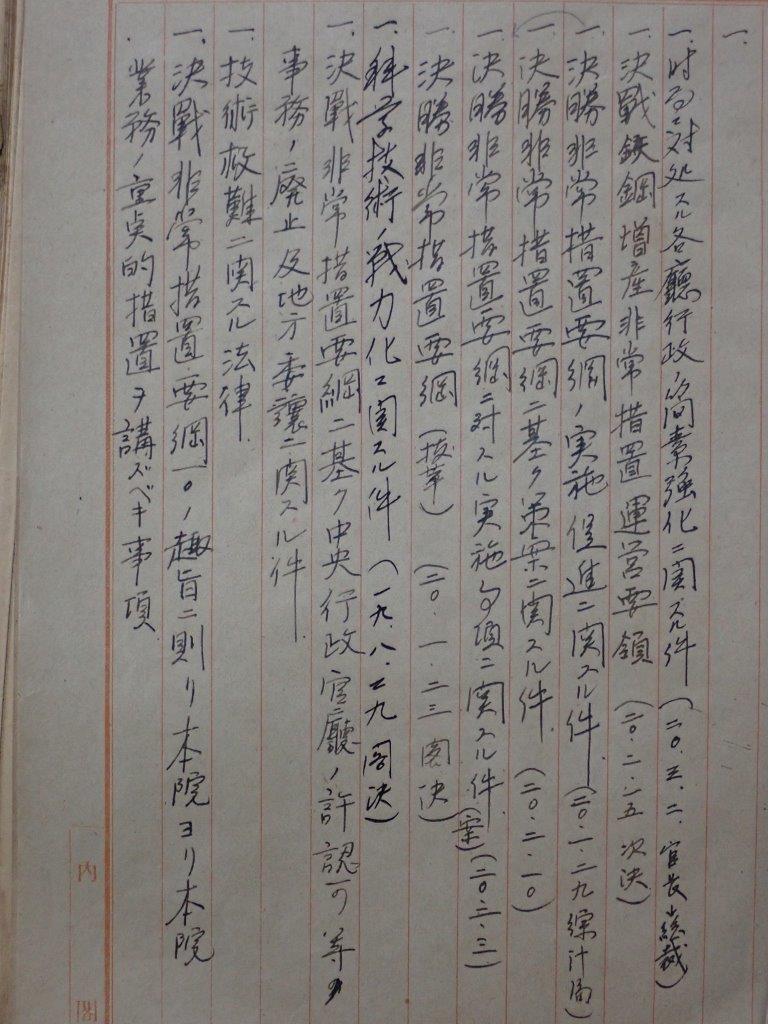 一、
一、時局ニ対処スル各廳行政ノ簡素強化ニ関スル件 (二〇、三、二、官長、総裁)
一、決戰鉄鋼増産非常措置運営要領 (二〇・二・一五 次決)
一、決勝非常措置要綱ノ実施促進ニ関スル件 (二〇・一・二九綜計局)
一、決勝非常措置要綱ニ基ク策案ニ関スル件 (二〇・二・一〇)
一、決勝非常措置要綱ニ対スル実施事項ニ関スル件(案)(二〇・三・三)
一、決勝非常措置要綱 (抜萃) (二〇・一・二三 閣決)
一、科学技術ノ戦力化ニ関スル件 (一九・八・二九 閣決)
一、決戰非常措置要綱ニ基ク中央行政官廳ノ許認可等ノ
事務ノ廃止及地方委讓ニ関スル件
一、技術救難ニ関スル法律
一、決戰非常措置要綱一〇ノ趣旨ニ則リ本院ヨリ本院
業務ノ重点的措置ヲ講ズベキ事項
内閣